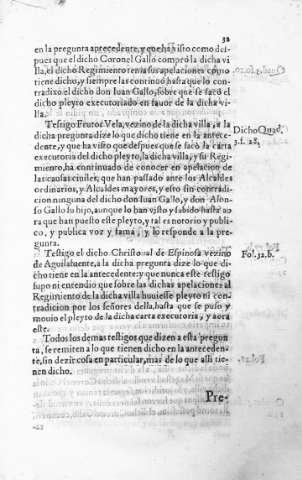 38
en la pregunta antecedente, y que ha visto como des-
pues que el dicho Coronel Gallo compró la dicha vi
lla, el dicho Regimiento tenia sus apelaciones como
tiene dicho, y siempre las continuó hasta que lo con-
tradixo el dicho don Iuan Gallo, sobre que se sacó el
dicho pleyto executoriado en fauor de la dicha vi-
lla.
Testigo Frutos Vela, vezino de la dicha villa, a la
dicha pregunta dize lo que dicho tiene en la antece-
dente, y que ha visto que despues que se sacó la carta
executoria del dicho pleyto, la dicha villa, y su Regi-
miento, ha continuado de conocer en apelacion de
las causas ciuiles, que han passado ante los Alcaldes
ordinarios, y Alcaldes mayores, y esto sin contradi-
cion ninguna del dicho don Iuan Gallo, y don Alon-
so Gallo su hijo, aunque lo han visto y sabido hasta ao
ra que han puesto este pleyto, y tal es notorio y publi-
co, y publica voz y fama, y lo responde a la pre-
gunta.
Dicho Quad.
3. f. 28.
Testigo el dicho Christoual de Espinosa vezino
de Aguilafuente, a la dicha pregunta dize lo que di-
cho tiene en la antecedente: y que nunca este testigo
supo ni entendio que sobre las dichas apelaciones al
Regimiento de la dicha villa huuiesse pleyto ni con-
tradicion por los señores della, hasta que se puso y
mouio el pleyto de la dicha carta executoria, y aora
este.
Fol. 32. b.
Todos los demas testigos que dizen a esta pregun
ta, se remiten a lo que tienen dicho en la anteceden-
te, sin dezir cosa en particular, mas de lo que alli tie-
nen dicho.
Pre-